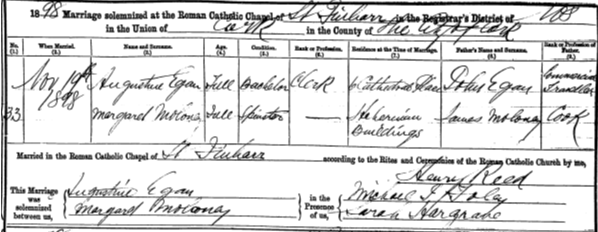 1898 Marriage solemnized at the Roman Catholic Chapel of St Finbarr in the Registrar's District of
in the Union of Cork in the County of The City of Cork
No. When Married. Name and Surname. Age. Condition. Rank or Profession. Residence at the Time of Marriage. Father's Name and Surname. Rank or Profession of Father.
(1.) (2.) (3.) (4.) (5.) (6.) (7.) (8.) (9.)
33 Nov 19th 1898 Augustine Egan Full Bachelor Clerk Cathedral Place John Egan Commercial Traveller
Margaret Moloney Full Spinster — Hibernian Buildings James Moloney Cook
Married in the Roman Catholic Chapel of St Finbarr according to the Rites and Ceremonies of the Roman Catholic Church by me,
Henry Reed
This Marriage was solemnized between us, Augustine Egan
Margaret Moloney
in the Presence of us, Michael J. Foley
Sarah Hargrave